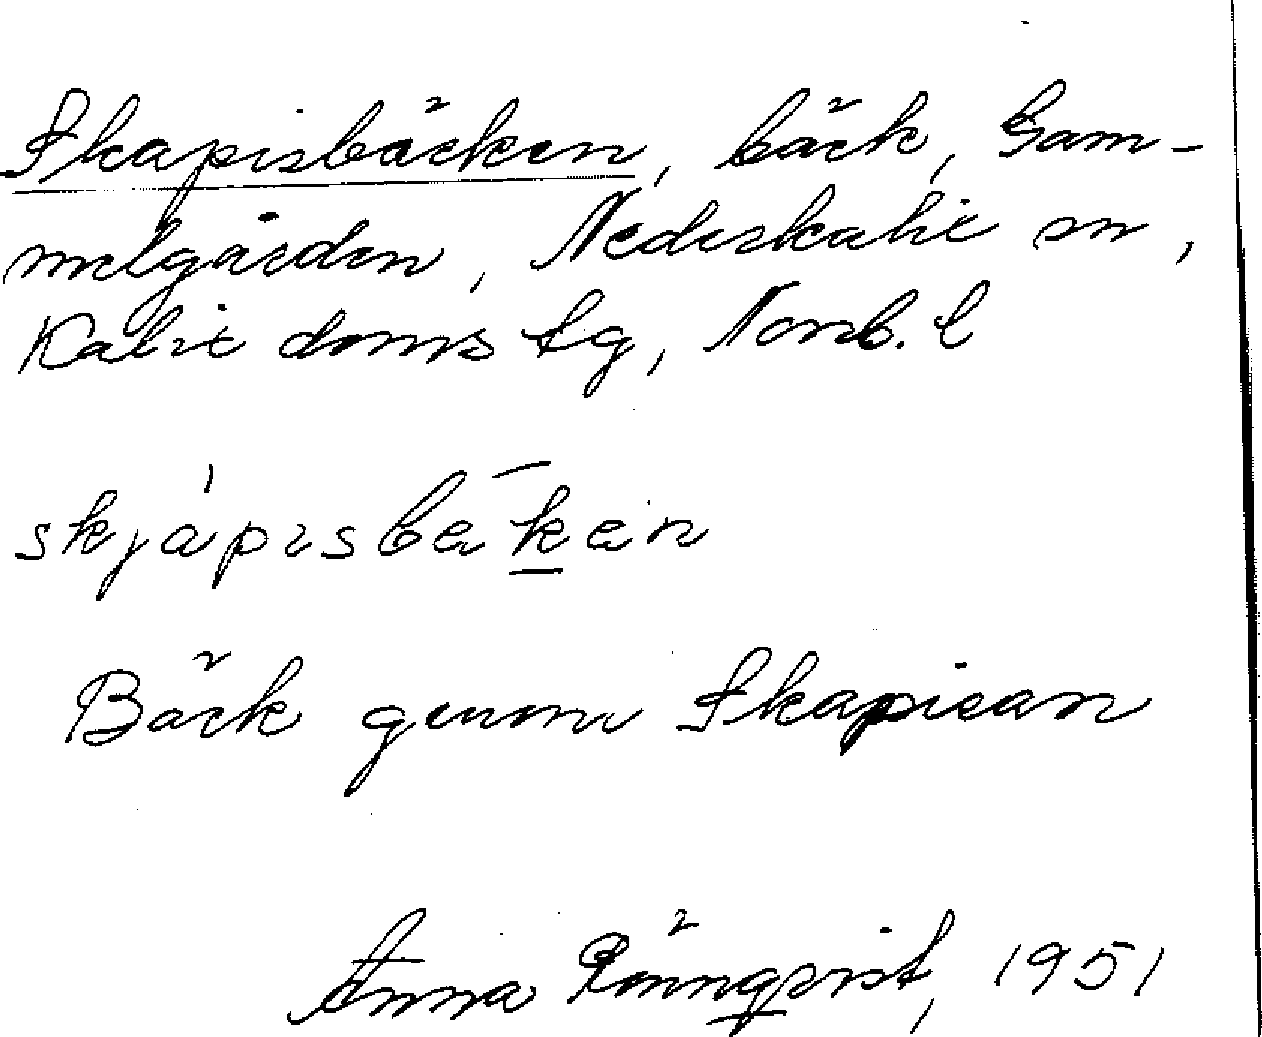 Skapisbäcken, bäck, Gam-
melgården, Nederkalix sn,
Kalix doms tg, Norrb. l
skjápisbäkän
Bäck genom Skapisan
Anna Rönnqvist, 1951